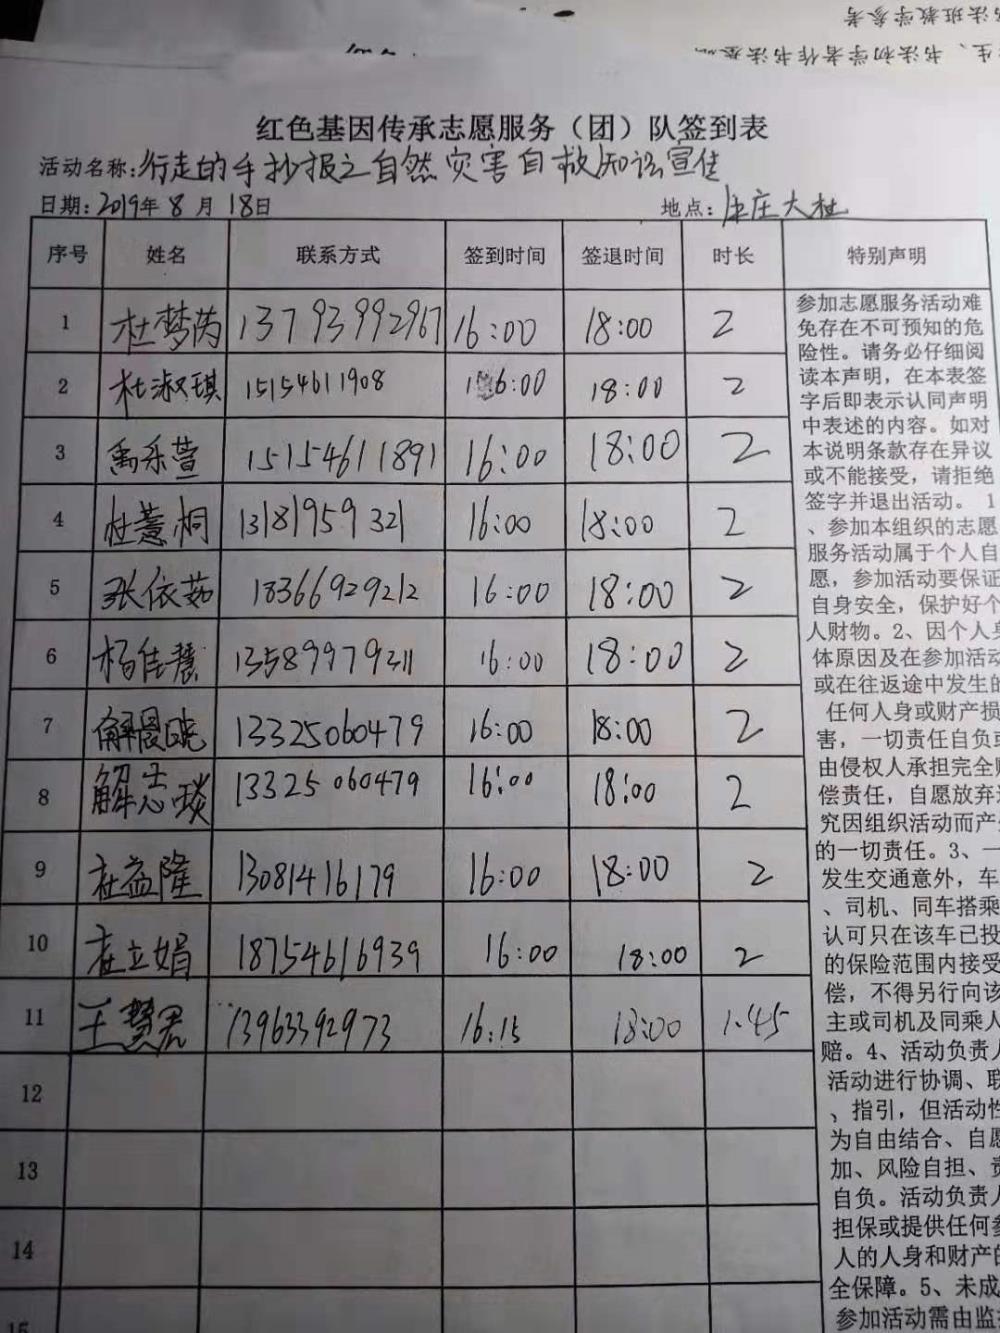 红色基因传承志愿服务（团）队签到表
活动名称:行走的手抄报之自然灾害自救知识宣传
日期:2019年8月18日 地点:庄大杜
序号 姓名 联系方式 签到时间 签退时间 时长 特别声明
1 杜梦芮 13793992967 16:00 18:00 2
2 杜淑琪 15154611908 16:00 18:00 2
3 禹乐萱 15154611891 16:00 18:00 2
4 杜薏桐 13181959321 16:00 18:00 2
5 张依茹 18366929212 16:00 18:00 2
6 杨佳慧 13589979311 16:00 18:00 2
7 解晨晓 13325060479 16:00 18:00 2
8 解志琰 13325060479 16:00 18:00 2
9 杜益隆 13081416179 16:00 18:00 2
10 杜立娟 18754616939 16:00 18:00 2
11 王慧君 13963392973 16:15 18:00 1.45
12
13
14
15
参加志愿服务活动难
免存在不可预知的危
险性。请务必仔细阅
读本声明，在本表签
字后即表示认同声明
中表述的内容。如对
本说明条款存在异议
或不能接受，请拒绝
签字并退出活动。 1
、参加本组织的志愿
服务活动属于个人自
愿，参加活动要保证
自身安全，保护好个
人财物。2、因个人身
体原因及在参加活动
或在往返途中发生的
任何人身或财产损
害，一切责任自负或
由侵权人承担完全赔
偿责任，自愿放弃追
究因组织活动而产生
的一切责任。3、一
发生交通意外，车
、司机、同车搭乘
认可只在该车已投
的保险范围内接受
偿，不得另行向该
主或司机及同乘人
赔。4、活动负责人
活动进行协调、联
、指引，但活动性
为自由结合、自愿
加、风险自担、责
自负。活动负责人
担保或提供任何参
人的人身和财产的
全保障。5、未成
参加活动需由监